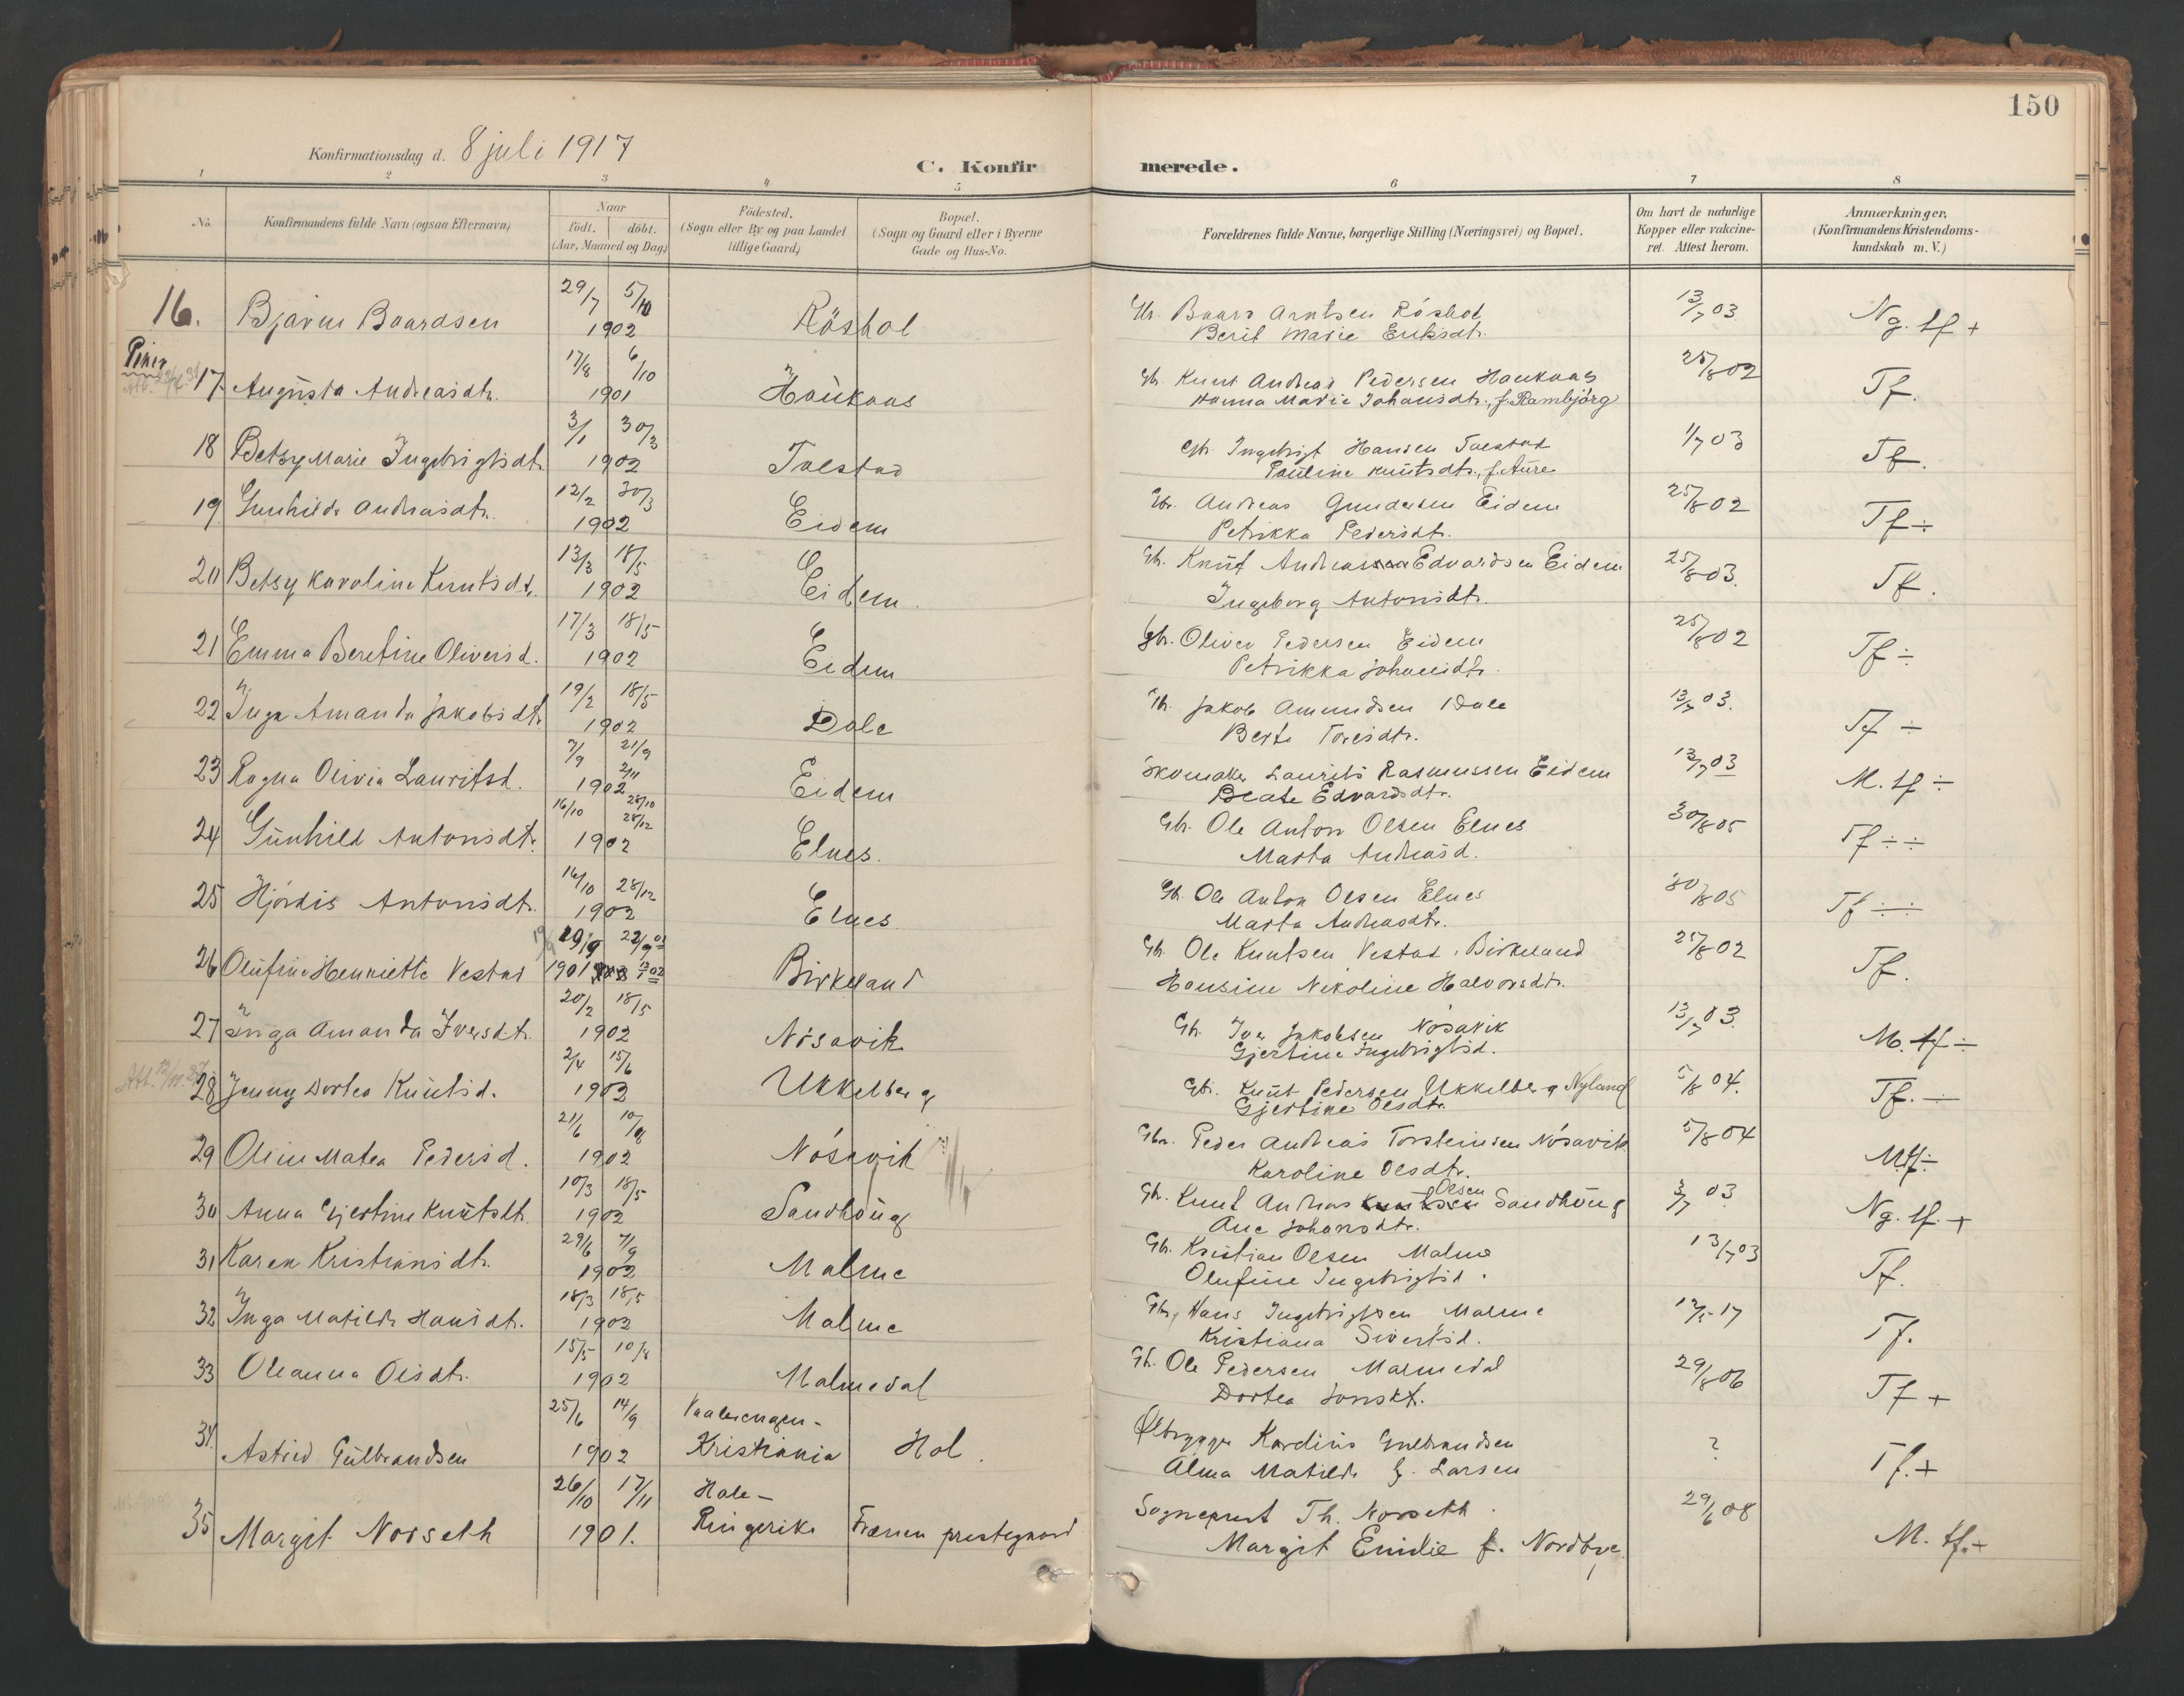 150
Konfirmationsdag d. 8 juli 1917
C. Konfirmerede.
1 2 3 4 5 6 7 8
No.
Konfirmandens fulde Navn (ogsaa Efternavn)
Naar
født. døbt.
(Aar, Maaned og Dag)
Fødested.
(Sogn eller By og paa Landet
tillige Gaard)
Bopæl.
(Sogn og Gaard eller i Byerne
Gade og Hus-No.
Forældrenes fulde Navne, borgerlige Stilling (Næringsvei) og Bopæl.
Om havt de naturlige
Kopper eller vakcine-
ret. Attest herom.
Anmærkninger.
(Konfirmandens Kristendoms-
kundskab m. V.)
16. Bjarne Baardsen 29/7 5/10 1902 Röshol Gbr. Baard Arntsen Röshol 13/7 03 Ng. tf +
Berit Marie Eriksdtr.
Piker
17. Augusta Andreasdtr. 17/8 6/10 1901 Haukaas Gbr. Knut Andreas Pedersen Haukaas 25/8 02 Tf.
Hanna Marie Johansdtr., f. Rambjörg
18 Betsy Marie Ingebrigtsdtr. 3/1 30/3 1902 Talstad Gbr. Ingebrigt Hansen Talstad 1/7 03 Tf.
Pauline Knutsdtr., f. Aure
19 Gunhild Andreasdtr. 12/2 30/3 1902 Eidem Gbr. Andreas Gundersen Eidem 25/8 02 Tf ÷
Petrikka Pedersdtr.
20 Betsy Karoline Knutsdtr. 13/3 18/5 1902 Eidem Gbr. Knut Andreas Edvardsen Eidem 25/8 03. Tf.
Ingeborg Antonsdtr.
21 Emma Beretine Oliversd. 17/3 18/5 1902 Eidem Gbr. Oliver Pedersen Eidem 25/8 02 Tf ÷
Petrikka Johansdtr.
22 Inga Amanda Jakobsdtr. 19/2 18/5 1902 Dale Gbr. Jakob Amundsen Dale 13/7 03. Tf ÷
Berte Toresdtr.
23 Ragna Olivia Lauritsd. 7/9 21/9 2/11 1902 Eidem Skomaker Laurits Rasmussen Eidem 13/7 03 M. tf ÷
Beate Edvardsdtr.
24 Gunhild Antonsdtr. 16/10 28/10 28/12 1902 Elnes. Gbr. Ole Anton Olsen Elnes 30/8 05 Tf ÷ ÷
Marta Andreasd.
25 Hjördis Antonsdtr. 16/10 28/12 1902 Elnes Gbr. Ole Anton Olsen Elnes 30/8 05 Tf ÷ ÷
Marta Andreasdtr.
26 Olufine Henriette Vestad 1901 Birkeland Gbr. Ole Knutsen Vestad, Birkeland 25/8 02 Tf.
Hansine Nikoline Halvorsdtr.
27 Inga Amanda Iversdtr. 20/2 18/5 1902 Nösavik Gbr. Iver Jakobsen Nösavik 13/7 03. M. tf ÷
Gjertine Ingebrigtsd.
28 Jenny Dortea Knutsd. 2/4 15/6 1902 Ukkelberg Gbr. Knut Pedersen Ukkelberg Nyland 5/8 04. Tf. ÷
Gjertine Olsdtr.
29 Oline Matea Pedersd. 21/6 10/8 1902 Nösavik Gbr. Peder Andreas Torsteinsen Nösavik 5/8 04 M.tf ÷
Karoline Olsdtr.
30 Anna Gjertine Knutsdtr. 10/3 18/5 1902 Sandhaug Gbr. Knut Andreas Olsen Sandhaug 3/7 03 Ng. tf. +
Ane Johansdtr.
31 Karen Kristiansdtr. 29/6 7/9 1902 Malme Gbr. Kristian Olsen Malme 13/7 03 Tf.
Olufine Ingebrigtsd.
32 Inga Matilde Hansdtr. 18/3 18/5 1902 Malme Gbr. Hans Ingebrigtsen Malme 12/5 17 Tf.
Kristiana Sivertsd.
33 Oleanna Olsdtr. 15/5 10/8 1902 Malmedal Gbr. Ole Pedersen Malmedal 29/8 06 Tf +
Dortea Jonsdtr.
34. Astrid Gulbrandsen 25/6 14/9 1902 Vaalerengen - Kristiania Hol. Ølbrygger Kardius Gulbrandsen ? Tf. +
Alma Matilde f. Larsen
35 Margit Norseth 26/10 17/11 1901. Hole - Ringerike Frænen prestegaard Sogneprest Th. Norseth 29/6 08 M. tf. +
Margit Emilie f. Nordbye